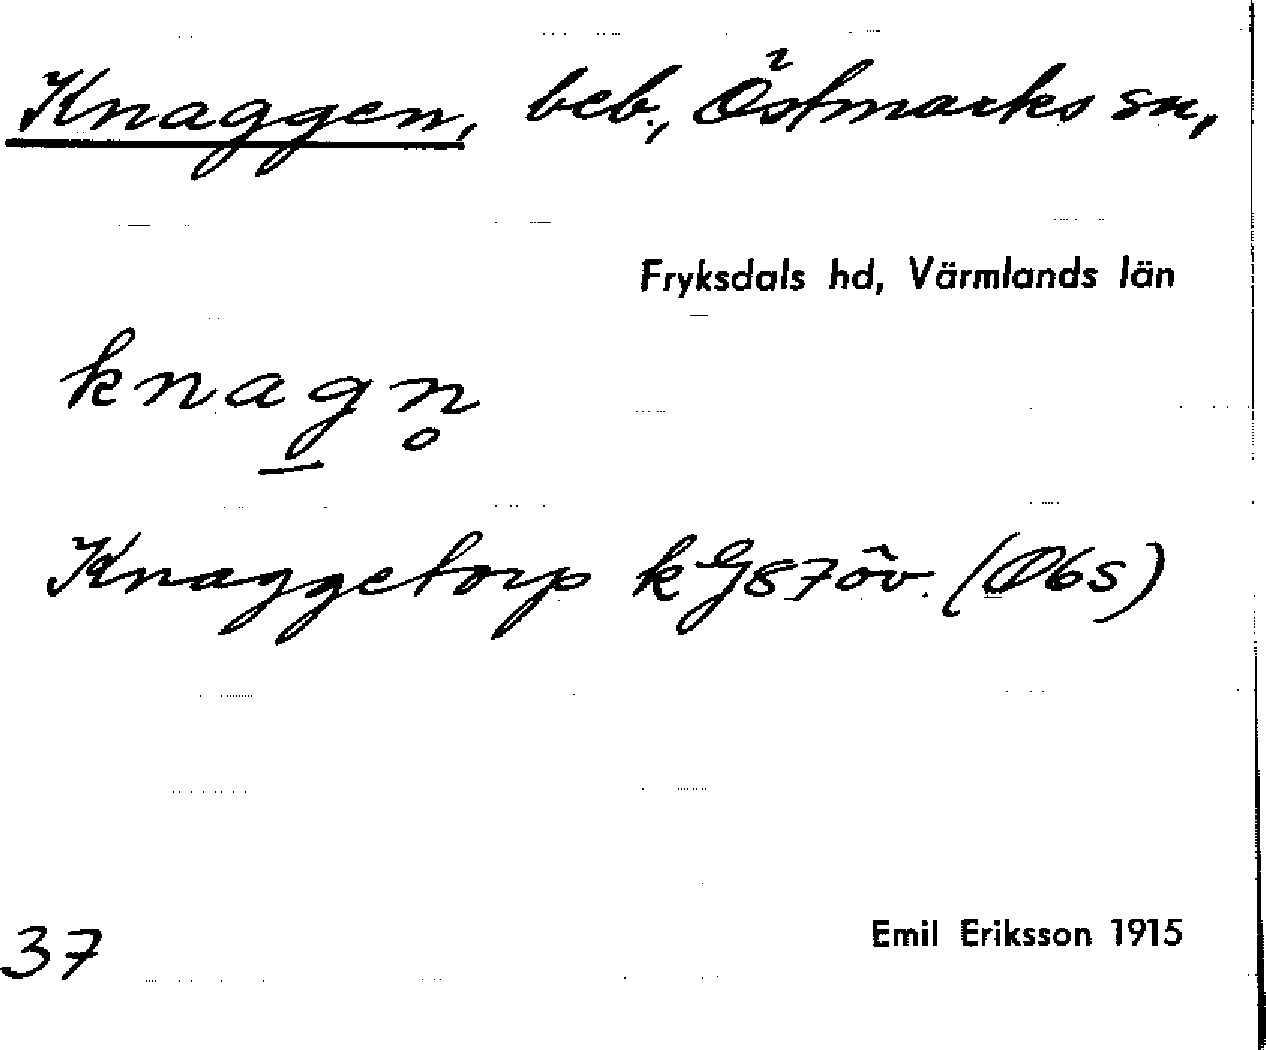 Knaggen, beb., Östmarks sn,
Fryksdals hd, Värmlands län
knag̱n̥
Knaggetorp kG87öv. (Ö6s)
37
Emil Eriksson 1915